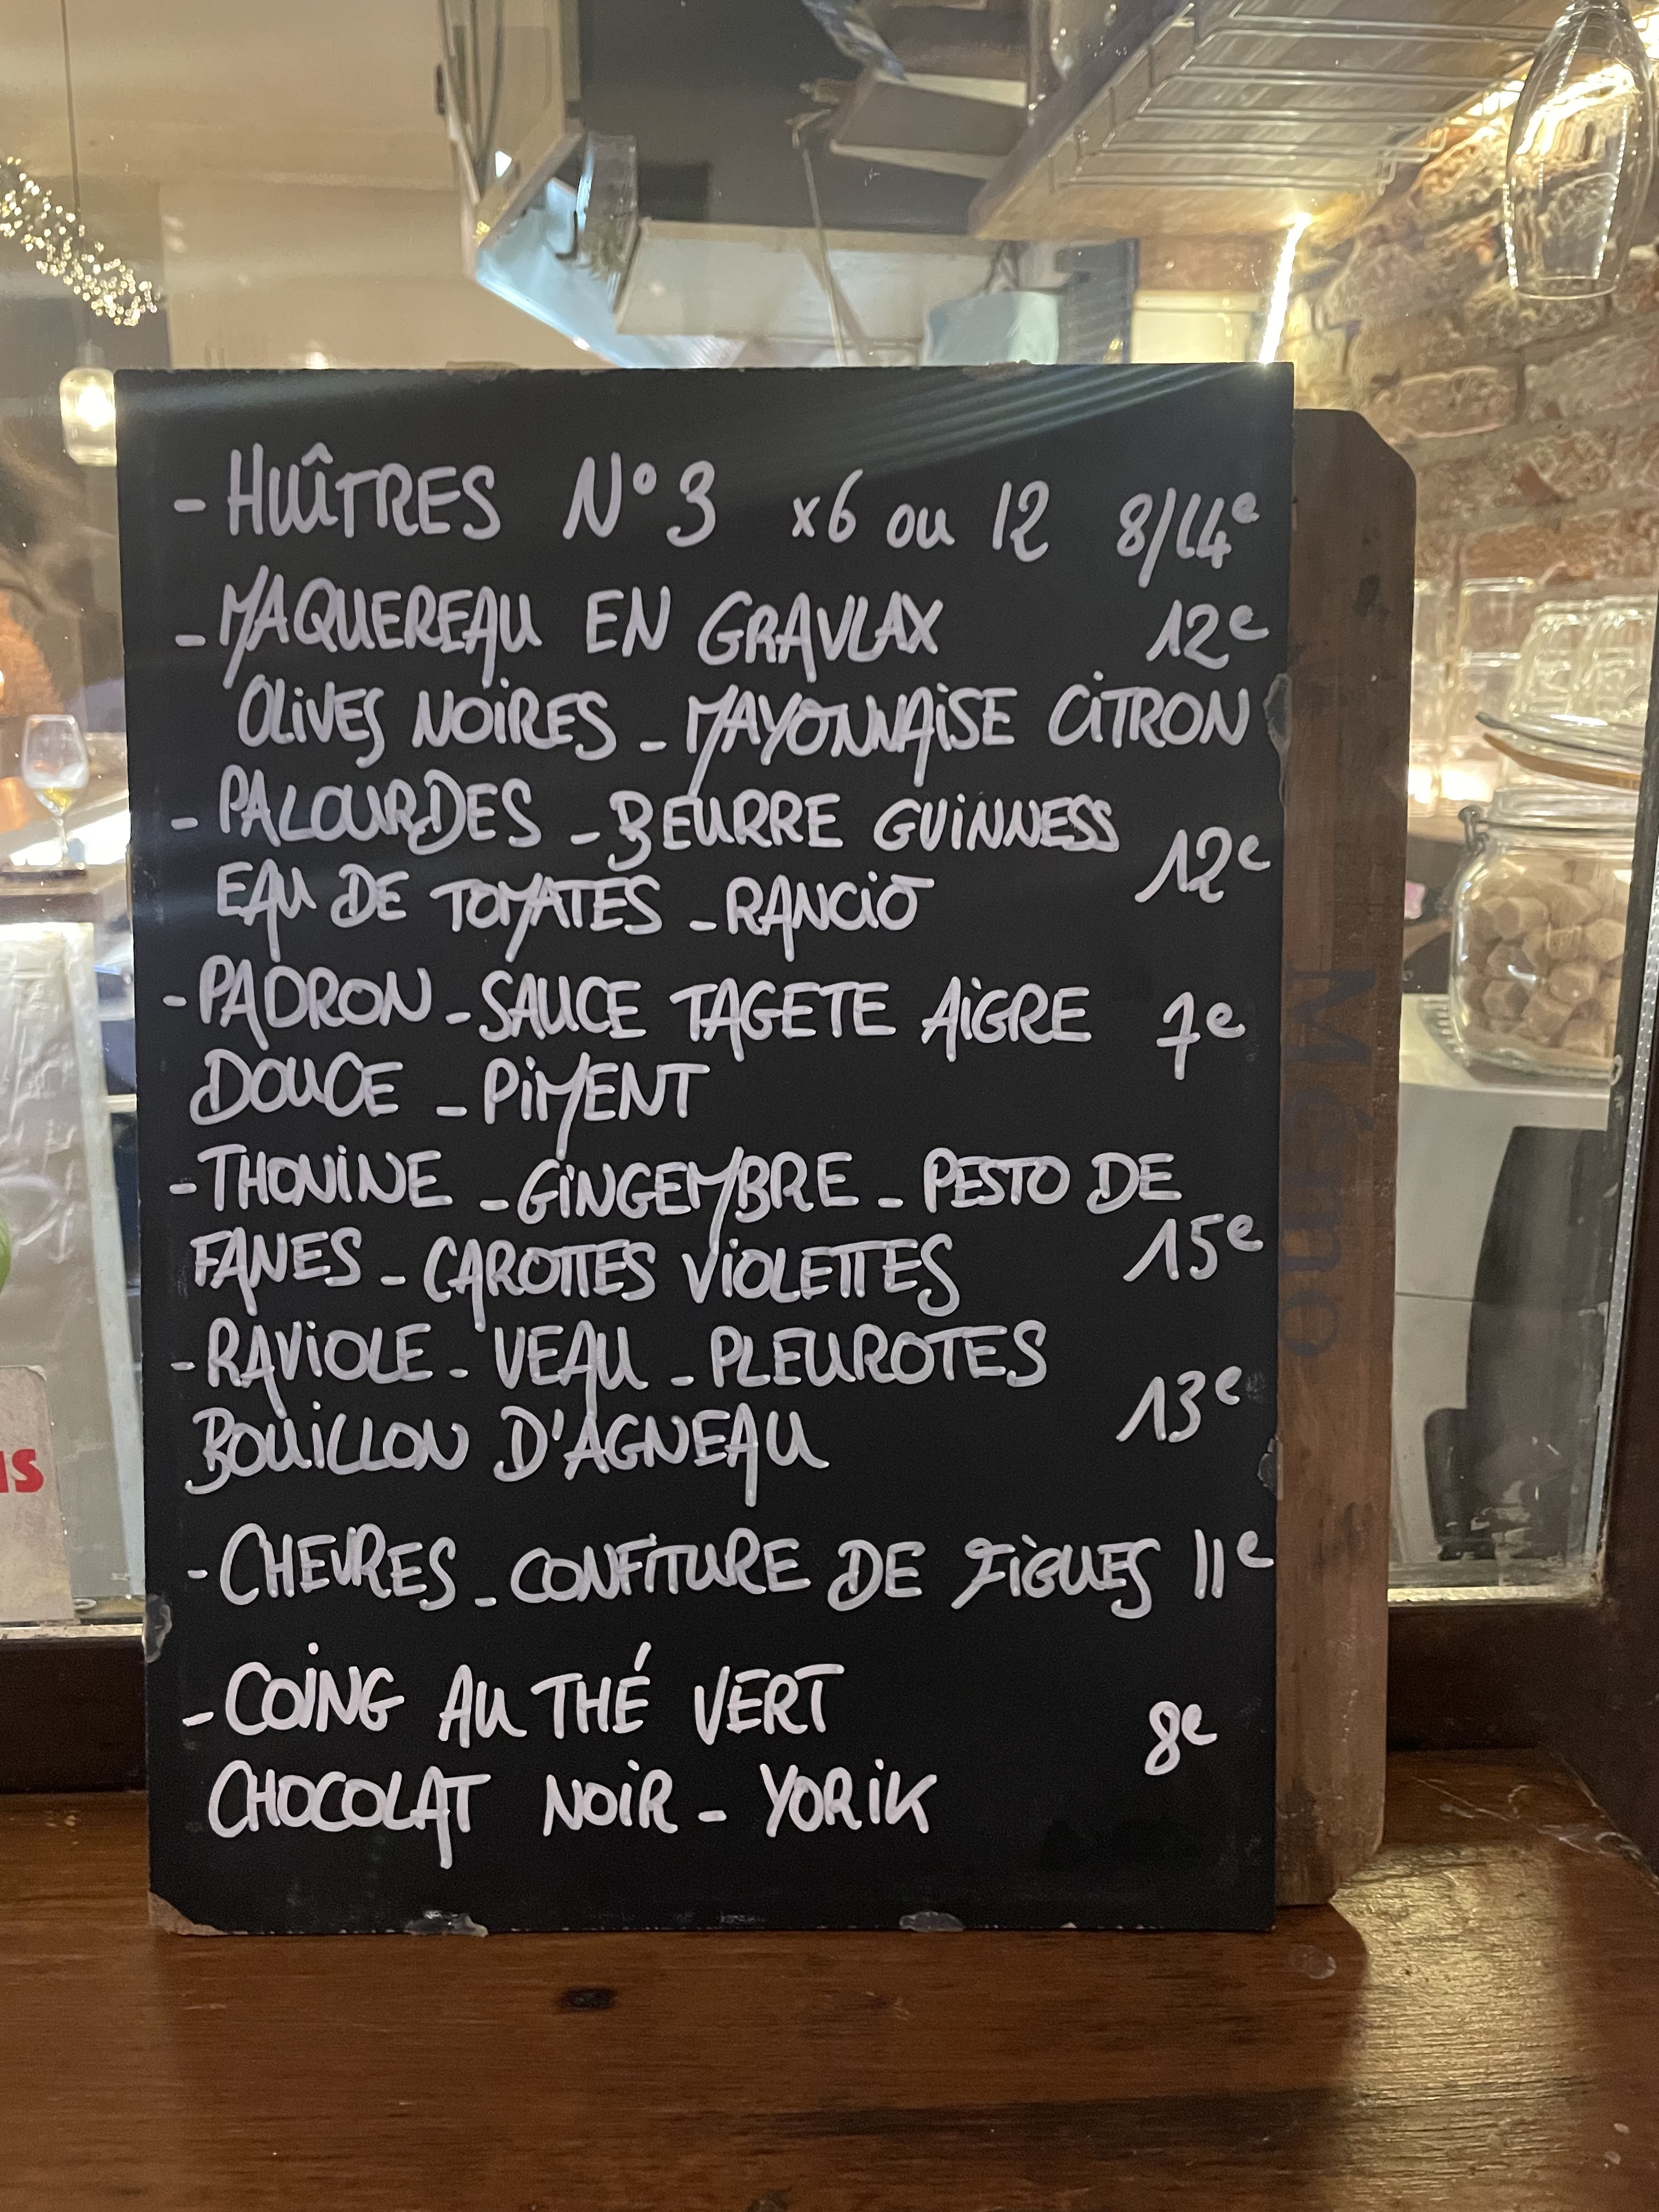 - HUÎTRES N°3 x6 ou 12 8/14e
- MAQUEREAU EN GRAVLAX 12e
OLIVES NOIRES - MAYONNAISE CITRON
- PALOURDES - BEURRE GUINNESS
12e
EAU DE TOMATES - RANCIO
- PADRON - SAUCE TAGETE AIGRE 7e
DOUCE - PIMENT
- THONINE - GINGEMBRE - PESTO DE
FANES - CAROTTES VIOLETTES 15e
- RAVIOLE - VEAU - PLEUROTES
13e
BOUILLON D'AGNEAU
- CHEVRES - CONFITURE DE FIGUES 11e
- COING AU THÉ VERT
8e
CHOCOLAT NOIR - YORIK
Mémo